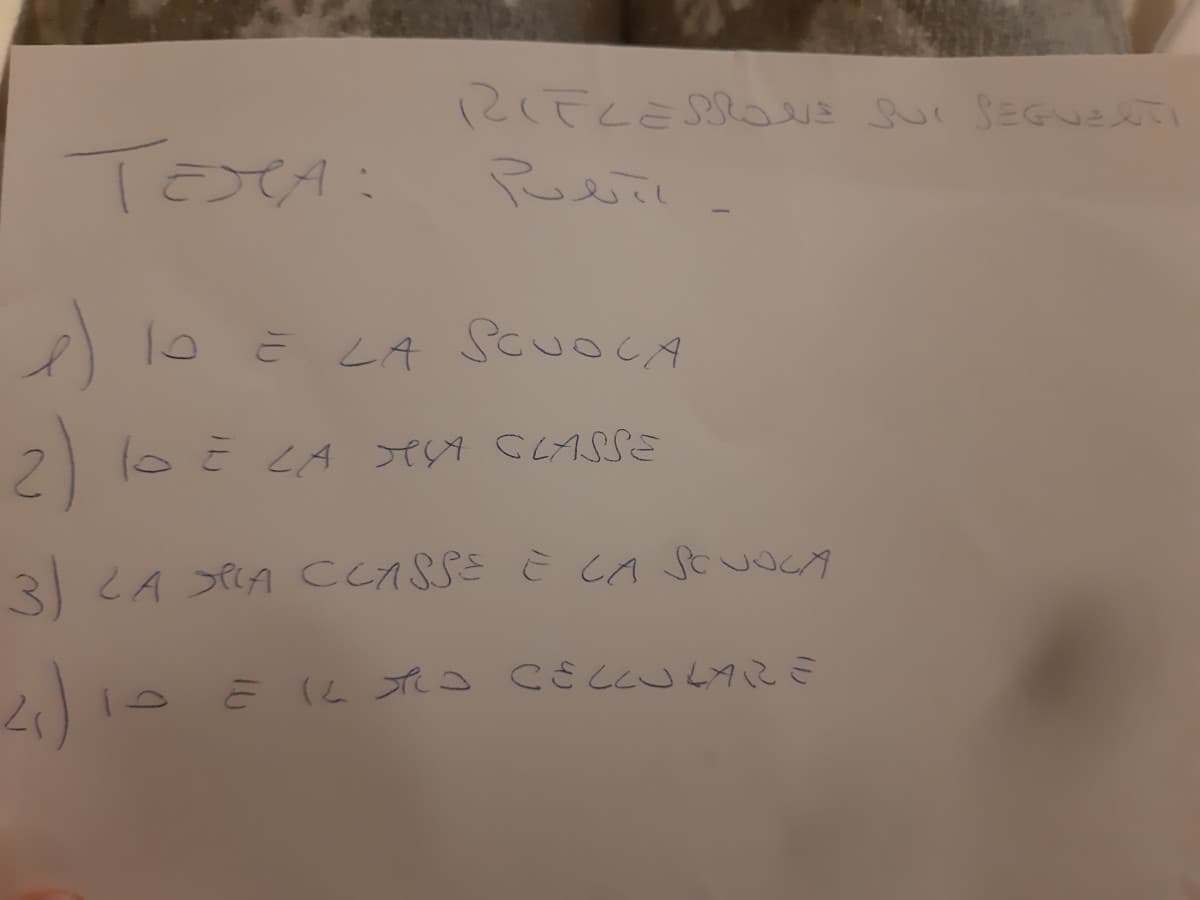 RIFLESSIONE SUI SEGUENTI
TEMA: PUNTI -
1) IO E LA SCUOLA
2) IO E LA MIA CLASSE
3) LA MIA CLASSE E LA SCUOLA
4) IO E IL MIO CELLULARE